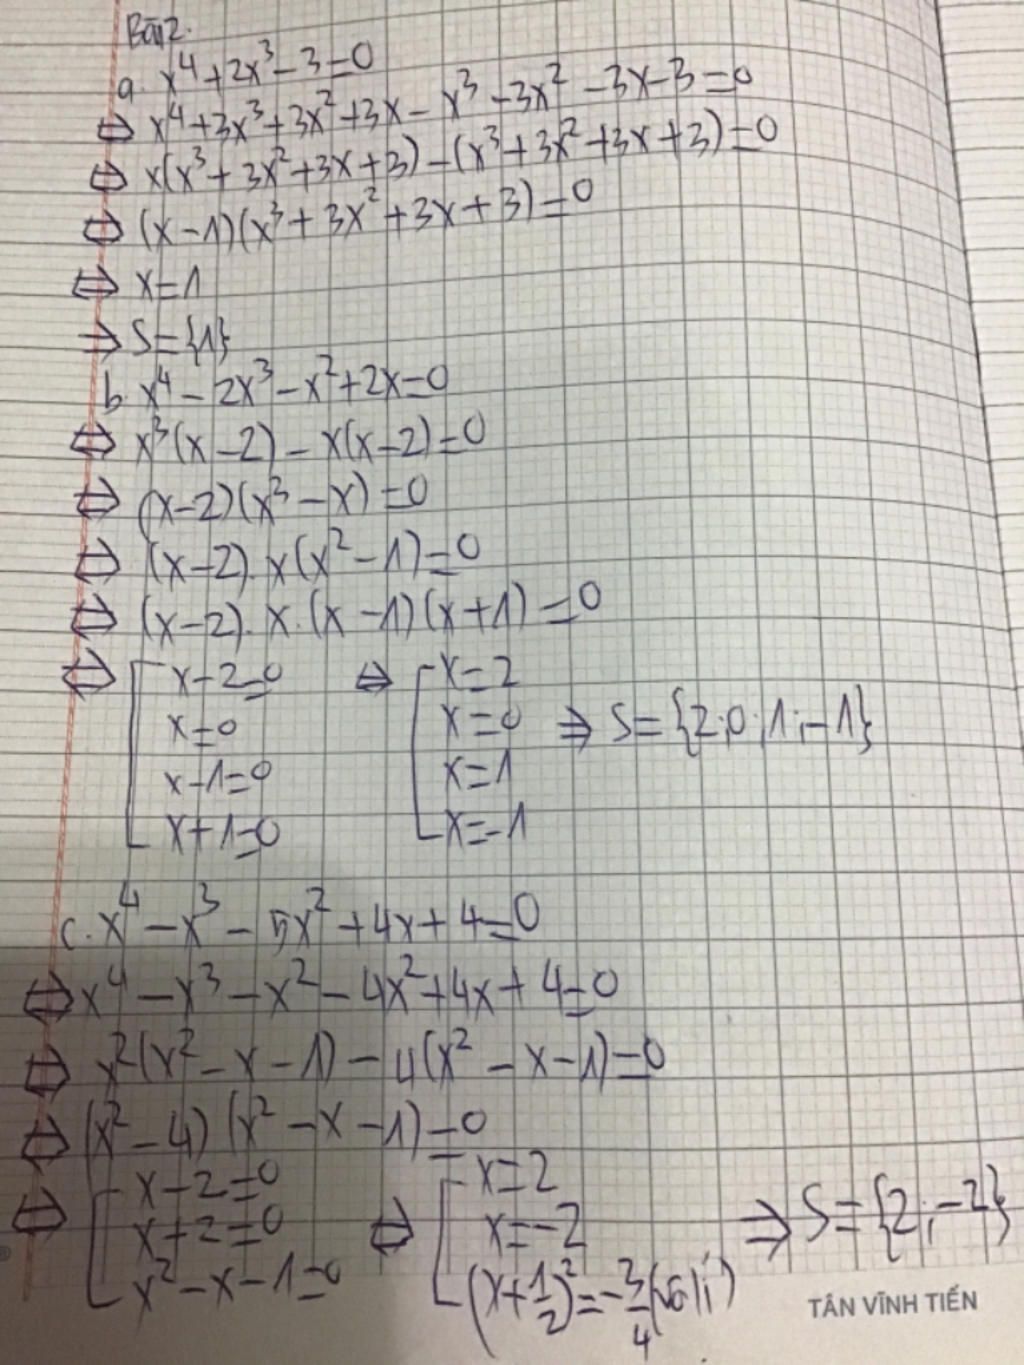 Bài 2.
a. x⁴+2x³-3=0
⇔ x⁴+3x³+3x²+3x-x³-3x²-3x-3=0
⇔ x(x³+3x²+3x+3)-(x³+3x²+3x+3)=0
⇔ (x-1)(x³+3x²+3x+3)=0
⇔ x=1
⇒ S={1}
b. x⁴-2x³-x²+2x=0
⇔ x³(x-2)-x(x-2)=0
⇔ (x-2)(x³-x)=0
⇔ (x-2).x(x²-1)=0
⇔ (x-2).x.(x-1)(x+1)=0
⇔ [ x-2=0 ⇔ [ x=2
x=0 x=0 ⇒ S={2;0;1;-1}
x-1=0 x=1
x+1=0 x=-1
c. x⁴-x³-5x²+4x+4=0
⇔ x⁴-x³-x²-4x²+4x+4=0
⇔ x²(x²-x-1)-4(x²-x-1)=0
⇔ (x²-4)(x²-x-1)=0
⇔ [ x-2=0 ⇔ [ x=2
x+2=0 x=-2 ⇒ S={2;-2}
x²-x-1=0 (x+1/2)²=-3/4(vô lí)
TÂN VĨNH TIẾN